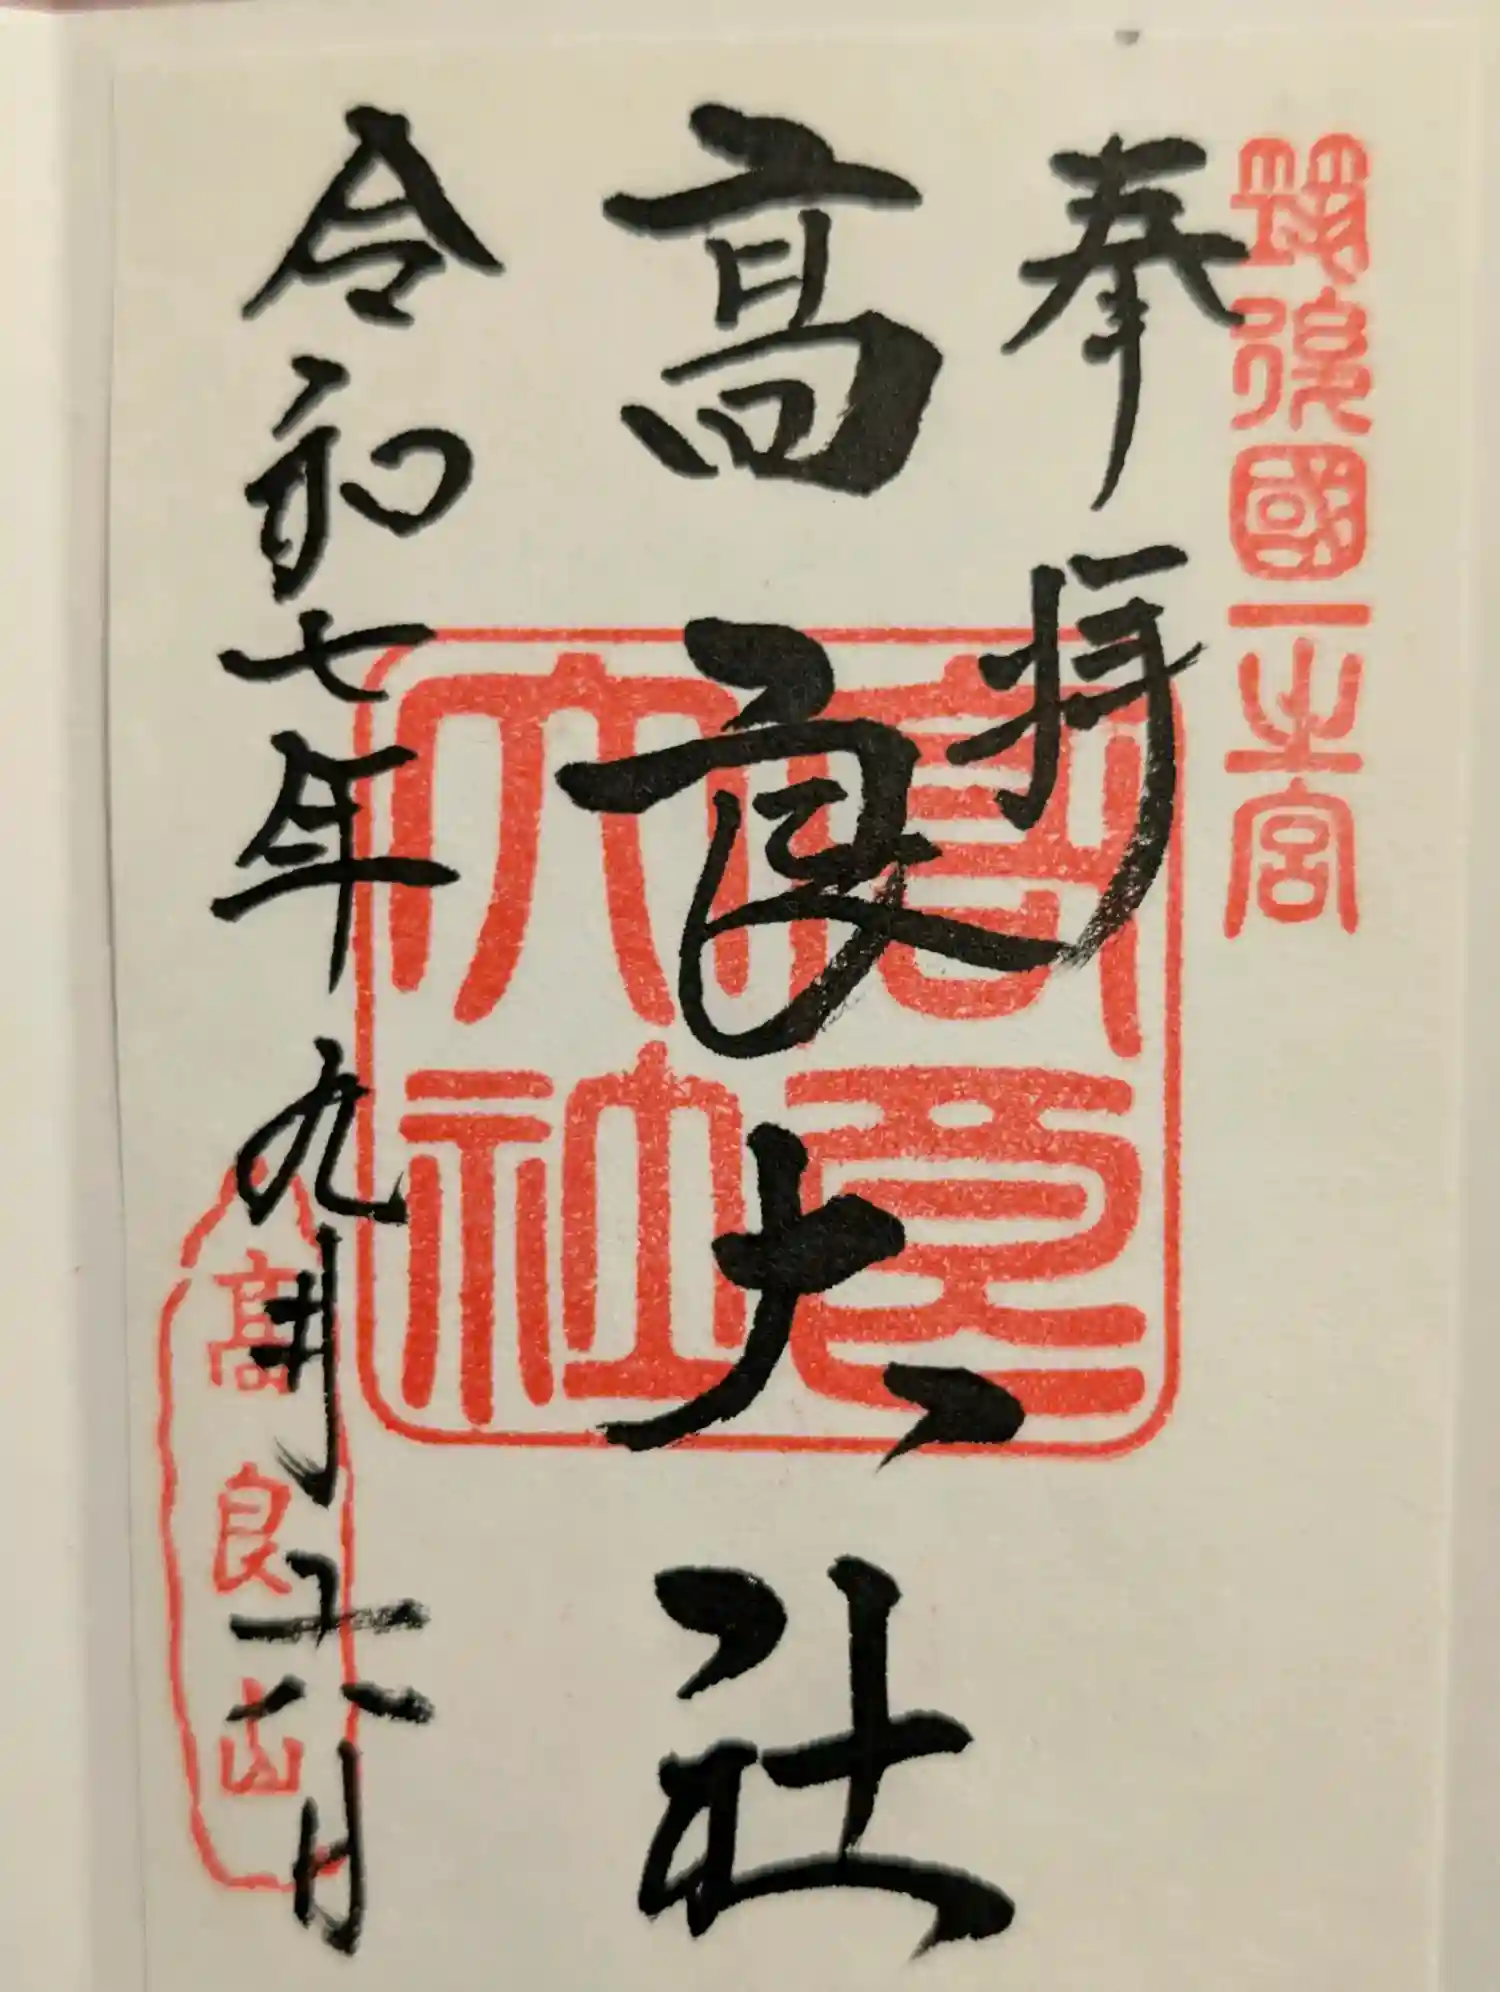 筑後國一之宮
奉拝
高良大社
高良大社
令和七年九月二十八日
高良山